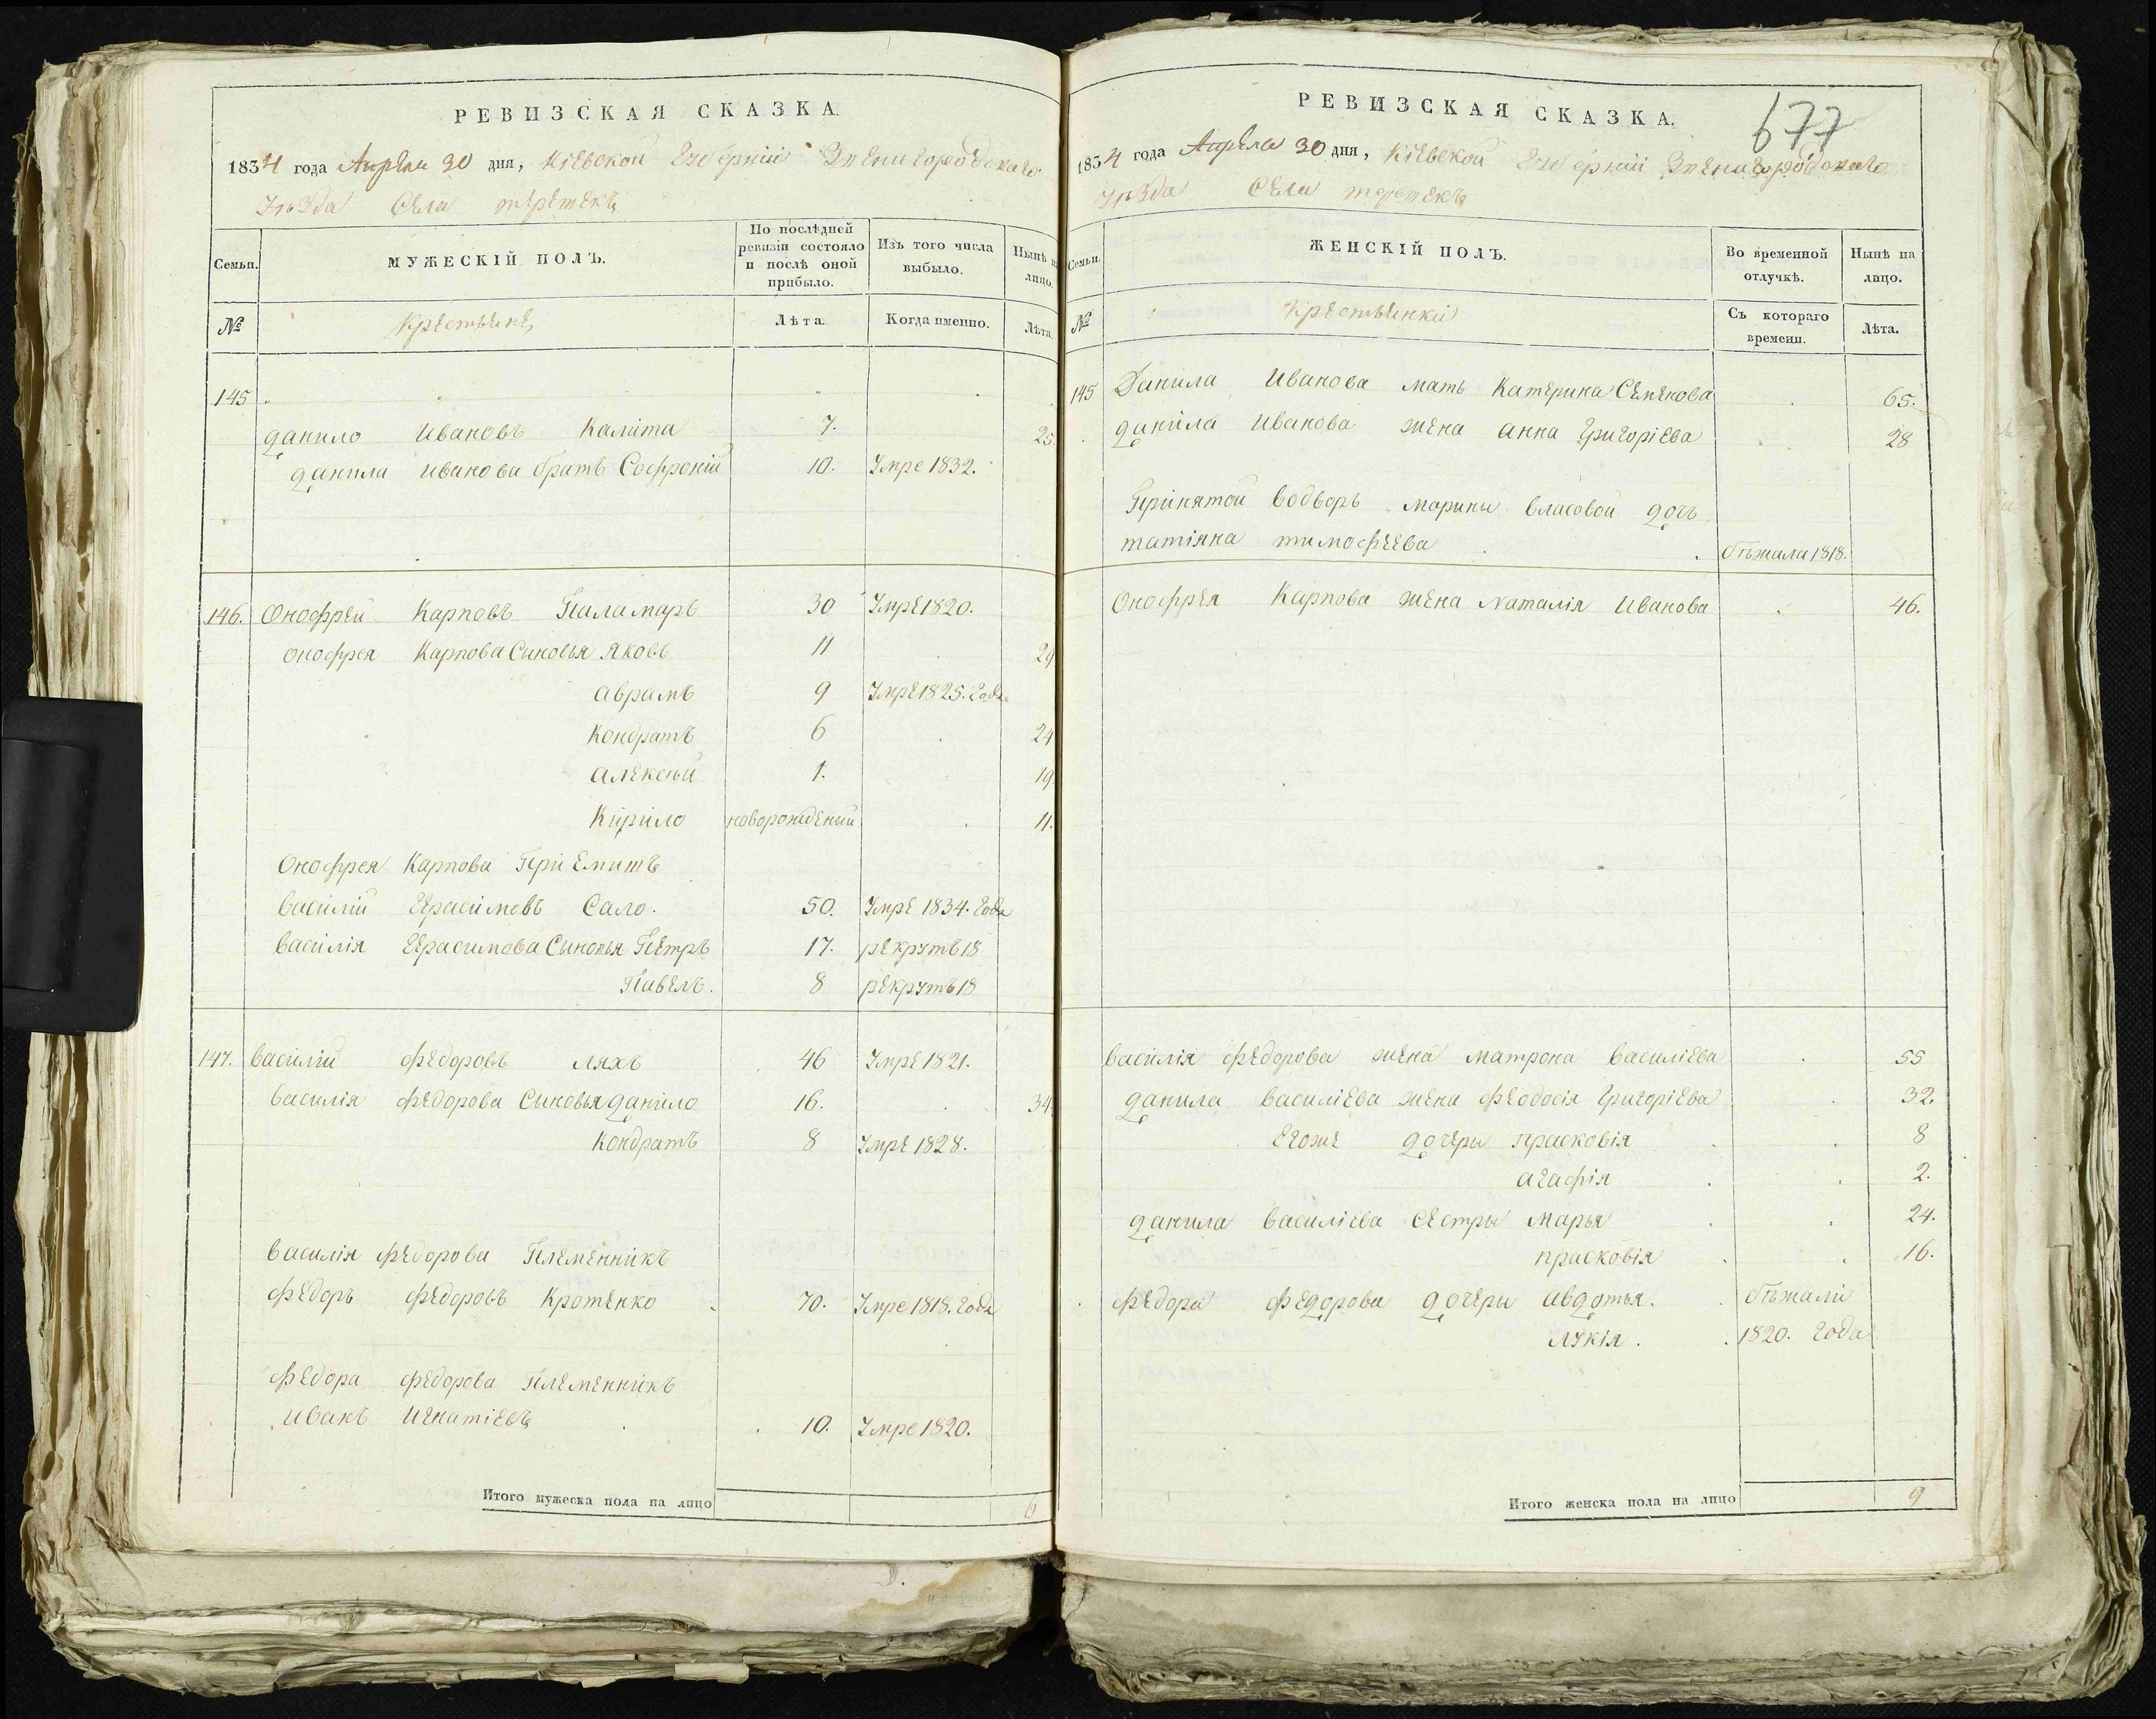 РЕВИЗСКАЯ СКАЗКА.
1834 года Апреля 30 дня, Кіевской Губерніи Звенигородскаго
Уезда Села
Семьи.
МУЖЕСКІЙ ПОЛЪ.
По послѣдней ревизіи состояло и послѣ оной прибыло.
Изъ того числа выбыло.
Нынѣ на лицо.
№
Крестьяне
Лѣта.
Когда именно.
Лѣта.
145
данило Ивановъ Калита 7. 25
данила иванова братъ Софроній 10. Умре 1832.
146. Онофрей Карповъ Паламаръ 30 Умре 1820.
онофрея Карпова Синовья Яковъ 11 29
аврамъ 9 Умре 1825. Года
Кондратъ 6 24
алексѣй 1. 19
Кирило новорождений 11.
Онофрея Карпова Пріемишъ
Василій Герасимовъ Сало. 50. Умре 1834. Года
василія Герасимова Сыновья Петръ 17. рекрутъ 18
Павелъ. 8 рекрутъ 18
147. Василій Федоровъ Ляхъ 46 Умре 1821.
василія Федорова Синовья данило 16. 34
Кондратъ 8 Умре 1828.
василія Федорова Племенникъ
Федоръ Федоровъ Кротенко 70. Умре 1818. Года
Федора Федорова Племенникъ
Иванъ Игнатіевъ 10. Умре 1820.
Итого мужеска пола на лицо 6
РЕВИЗСКАЯ СКАЗКА.
677
1834 года Апреля 30 дня, Кіевской Губерніи Звенигородскаго
Уезда Села
Семьи.
ЖЕНСКІЙ ПОЛЪ.
Во временной отлучкѣ.
Нынѣ на лицо.
№
Крестьянки
Съ котораго времени.
Лѣта.
145 Данила Иванова мать Катерина Семенова 65.
данила Иванова жена анна Григоріева 28
Принятой водворъ марини власовой дочъ
татіяна тимофеева бѣжала 1818.
Онофрея Карпова жена Наталія Иванова 46.
василія Федорова жена матрона василіева 55
данила василіева жена Феодосія Григоріева 32.
егоже дочери прасковія 8
агафія 2.
данила василіева сестры марья 24.
прасковія 16.
Федора Федорова дочери авдотья. бѣжали
лукія. 1820. Года
Итого женска пола на лицо 9